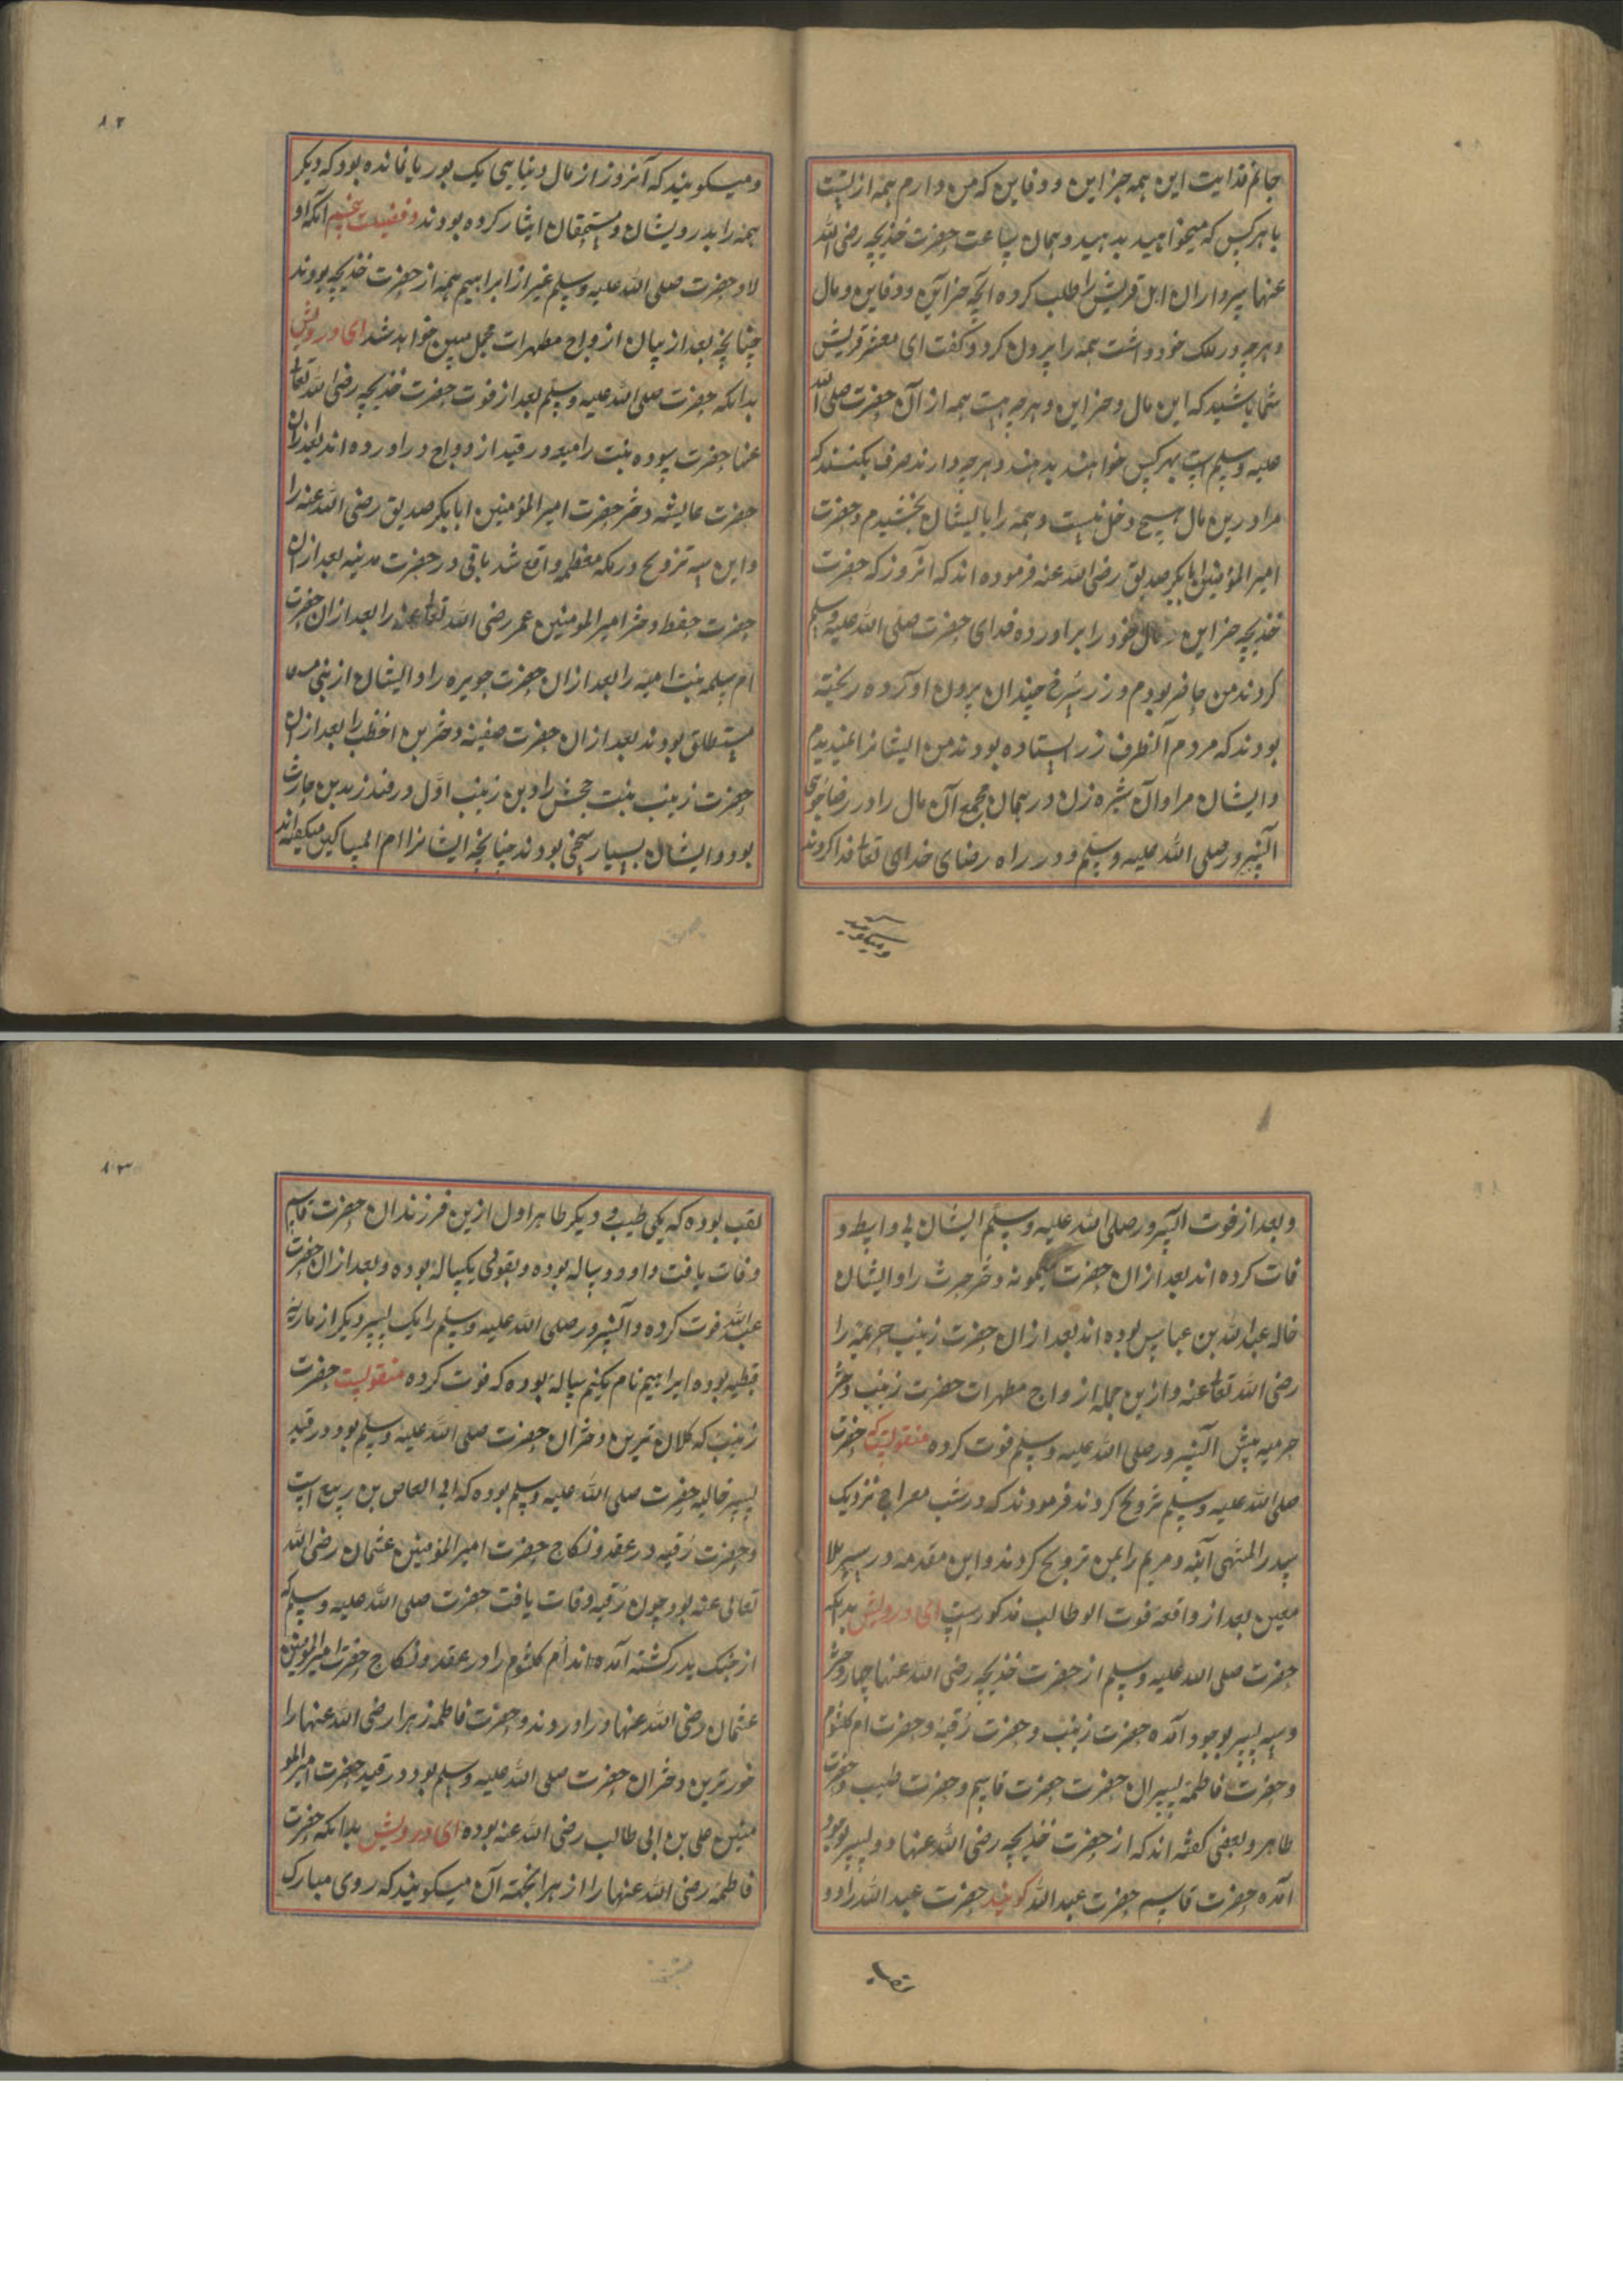 جانم فدایت این همه خزاین و دفاین که من دارم همه از تست
با هر کس که میخواهید بدهید و همان ساعت حضرت خدیجه رضی الله
عنها سرداران اهل قریش را طلب کرده آنچه خزاین و دفاین و مال
و هر چه در ملک خود داشت همه را بیرون کرد و گفت ای معشر قریش
شما باشید که این مال و خزاین و هر چه هست همه از آن حضرت صلی الله
علیه وسلم است بهر کس خواهند بدهند و هر چه دارند صرف بکنند که
مرا درین مال هیچ دخل نیست و همه را با ایشان بخشیدم و حضرت
امیر المؤمنین ابابکر صدیق رضی الله عنه فرموده اند که آنروز که حضرت
خدیجه خزاین و مال خود را براورده فدای حضرت صلی الله علیه وسلم
کردند من حاضر بودم و زر سرخ چندان بیرون آورده ریخته
بودند که مردم آنطرف زر ایستاده بودند من ایشانرا نمیدیدم
و ایشان مرا و آن شیره زن در همان مجمع آن مال را در رضاجوی
آنسرور صلی الله علیه وسلم و در راه رضای خدای تعالی فدا کردند
و میکویند
۸۲
و میکویند که آنروز از مال دنیایی یک بوریا نمانده بود که دیکر
همه را بدرویشان و مستحقان ایثار کرده بودند و فضیلت پنجم آنکه او
لاد حضرت صلی الله علیه وسلم غیر از ابراهیم همه از حضرت خدیجه بودند
چنانچه بعد از بیان ازواج مطهرات مجمل مبین خواهد شد ای درویش
بدانکه حضرت صلی الله علیه وسلم بعد از فوت حضرت خدیجه رضی الله تعالی
عنها حضرت سوده بنت رامعه در قید ازدواج دراورده اند بعد ازان
حضرت عایشه دختر حضرت امیر المؤمنین ابابکر صدیق رضی الله عنه را
و این سه تزویج در مکه معظمه واقع شد باقی در حضرت مدینه بعد ازان
حضرت حفظه دختر امیر المومنین عمر رضی الله تعالی عنه را بعد ازان حضرت
ام سلمه بنت امیه را بعد ازان حضرت جویره را و ایشان از بنی
مستطلق بودند بعد ازان حضرت صفیه دختر بن اخطب را بعد ازان
حضرت زینب بنت جحش را و بن زینب اول در قید زید بن حارث
بود و ایشان بسیار سخی بودند چنانچه ایشانرا ام المساکین میکفته اند
و بعد از فوت آنسرور صلی الله علیه وسلم ایشان بی واسطه و
فات کرده اند بعد ازان حضرت میمونه دختر حرث را و ایشان
خاله عبد الله بن عباس بوده اند بعد ازان حضرت زینب خزیمه را
رضی الله تعالی عنه و ازین جمله ازواج مطهرات حضرت زینب دختر
خزمیه پیش آنسرور صلی الله علیه وسلم فوت کرده منقولست که حضرت
صلی الله علیه وسلم تزویج کردند فرمودند که در شب معراج نزدیک
سدر المنتهی آسیه و مریم را بمن تزویج کردند و این مقدمه در سیر بلا
معین بعد از واقعه فوت ابوطالب مذکورست ای درویش بدانکه
حضرت صلی الله علیه وسلم از حضرت خدیجه رضی الله عنها چهار دختر
و سه پسر بوجود آمده حضرت زینب و حضرت رقیه و حضرت ام کلثوم
و حضرت فاطمه پسران حضرت حضرت قاسم و حضرت طیب و حضرت
طاهر و بعضی کفته اند که از حضرت خدیجه رضی الله عنها دو پسر بوجود
آمده حضرت قاسم حضرت عبد الله کویند حضرت عبد الله را دو
۸۳
لقب بوده که یکی طیب و دیکر طاهر اول ازین فرزندان حضرت قاسم
وفات یافت و او دوساله بوده و بقولی یکساله بوده و بعد ازان حضرت
عبد الله فوت کرده و آنسرور صلی الله علیه وسلم را یک پسر دیکر از ماریه
قبطیه بوده ابراهیم نام یکنیم ساله بوده که فوت کرده منقولست حضرت
زینب که کلان ترین دختران حضرت صلی الله علیه وسلم بود در قید
پسر خالیه حضرت صلی الله علیه وسلم بوده که ابی العاص بن ربیع است
و حضرت رقیه در عقد و نکاح حضرت امیر المؤمنین عثمان رضی الله
تعالی عنه بود چون رقیه وفات یافت حضرت صلی الله علیه وسلم که
از جنک بدر کشته آمده اند ام کلثوم را در عقد و نکاح حضرت امیر المؤمنین
عثمان رضی الله عنها دراوردند و حضرت فاطمه زهرا رضی الله عنها را
خورترین دختران حضرت صلی الله علیه وسلم بود در قید حضرت امیر المو
منین علی بن ابی طالب رضی الله عنه بوده ای درویش بدانکه حضرت
فاطمه رضی الله عنها را زهرا بجهة آن میکویند که روی مبارک